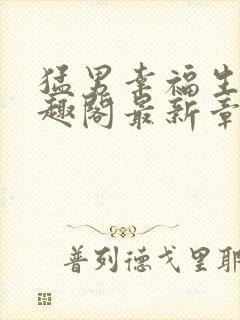 猛男幸福生
趣阁最新章
普列德戈里耶